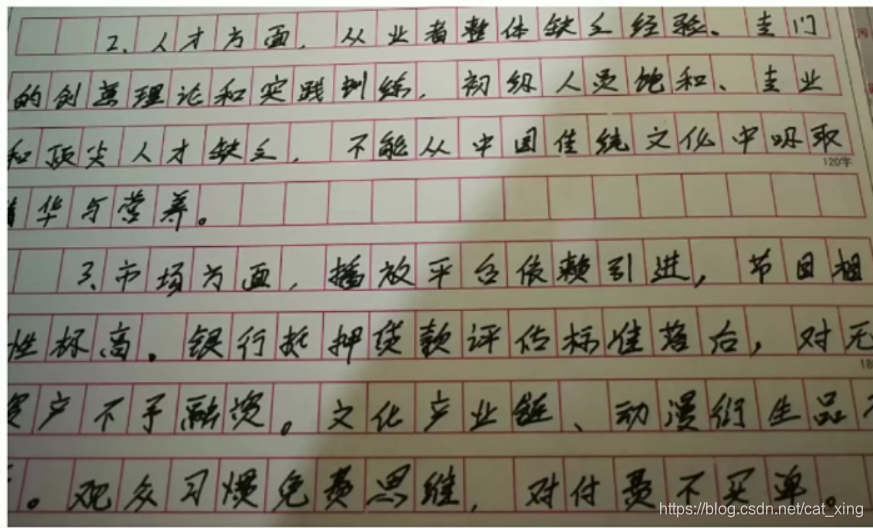 2、人才方面,从业者整体缺乏经验、专门
的创意理论和实践训练,初级人员饱和、专业
和顶尖人才缺乏,不能从中国传统文化中吸取
120字
华与营养。
3、市场方面,播放平台依赖引进,节目
性标高。银行抵押贷款评估标准落后,对无
资产不予融资。文化产业链、动漫衍生品
。观众习惯免费思维,对付费不买单。
https://blog.csdn.net/cat_xing